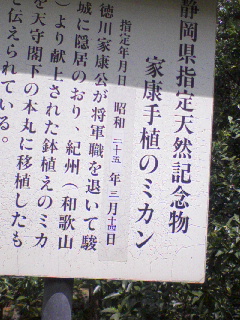 静岡県指定天然記念物
家康手植のミカン
指定年月日 昭和 二十五 年 三 月 十五 日
徳川家康公が将軍職を退いて駿
城に隠居のおり、紀州(和歌山
)より献上された鉢植えのミカ
を天守閣下の本丸に移植したも
と伝えられている。